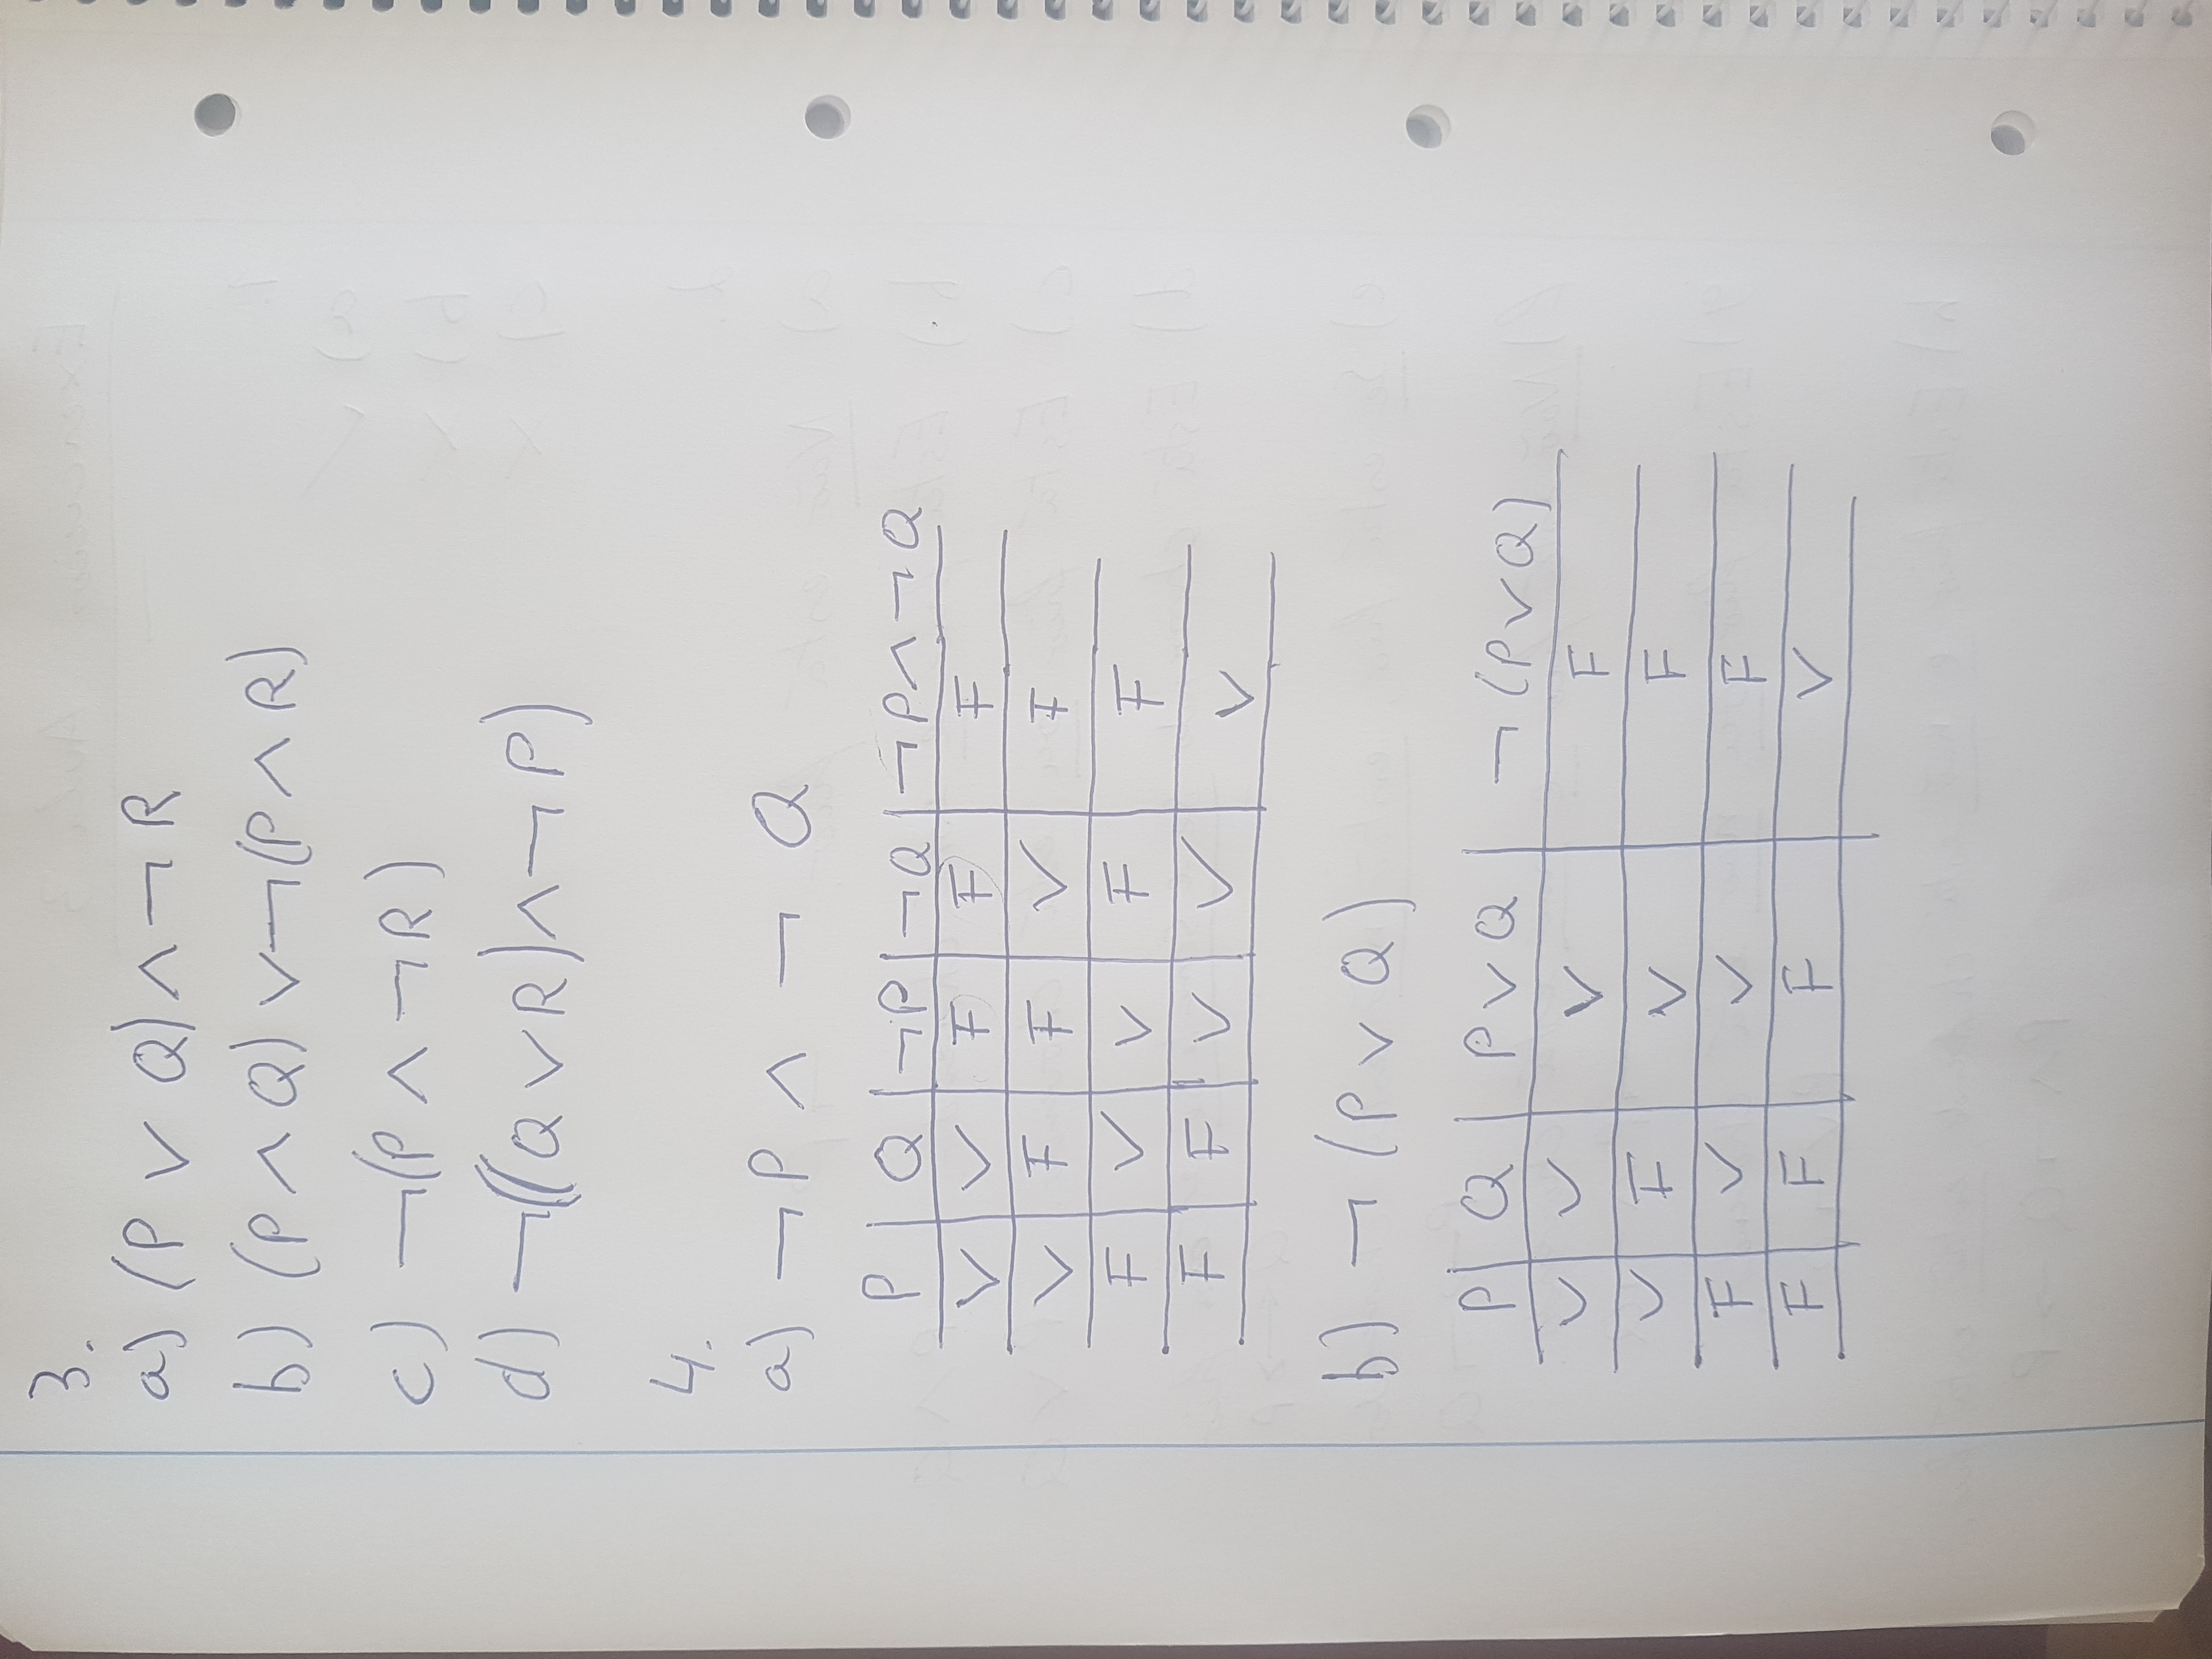 3.
a) (P ∨ Q) ∧ ¬ R
b) (P ∧ Q) ∨ ¬ (P ∧ R)
c) ¬ (P ∧ ¬ R)
d) ¬ ((Q ∨ R) ∧ ¬ P)
4.
a) ¬ P ∧ ¬ Q
P Q ¬P ¬Q ¬P ∧ ¬Q
V V F F F
V F F V F
F V V F F
F F V V V
b) ¬ (P ∨ Q)
P Q P ∨ Q ¬ (P ∨ Q)
V V V F
V F V F
F V V F
F F F V